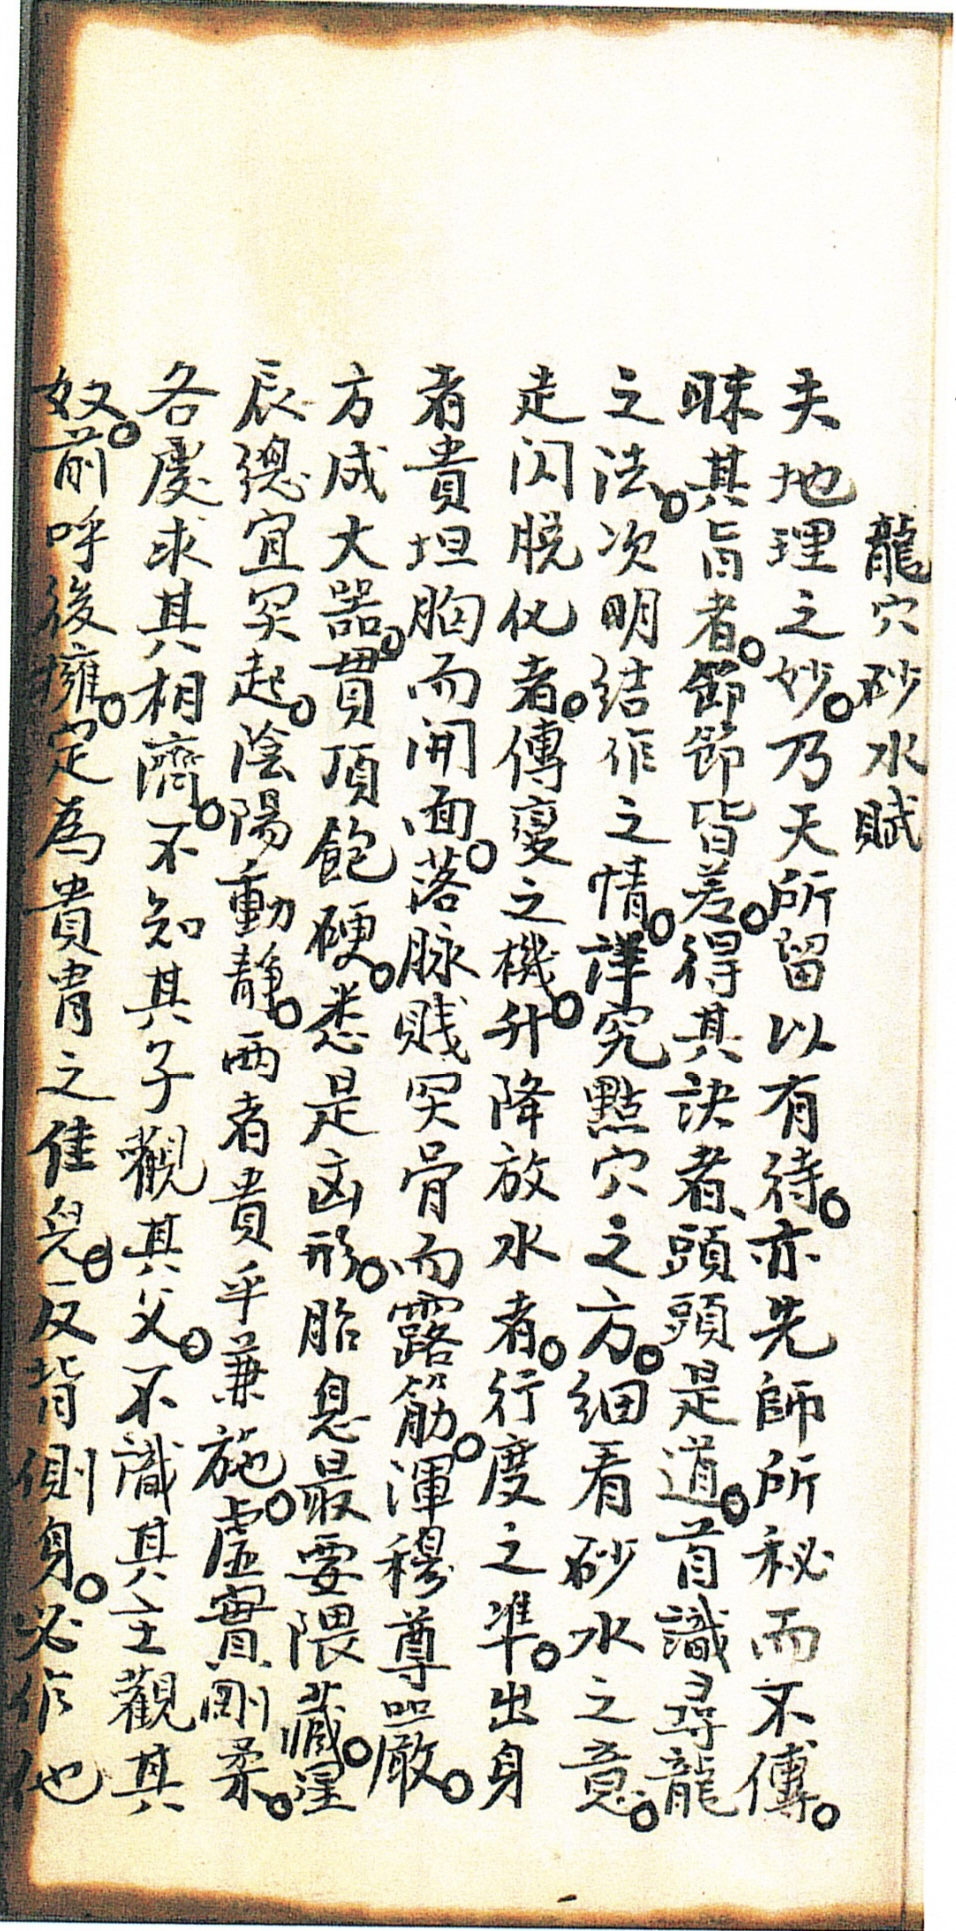 龍穴砂水賦
夫地理之妙。乃天所留以有待。亦先師所秘而不傳。
昧其旨者。節節皆差。得其訣者、頭頭是道。首識尋龍
之法。次明結作之情。詳究點穴之方。細看砂水之意。
走閃脱化者。傳變之機。升降放水者。行度之準。出身
者貴坦胸而開面。落脉賤突骨而露筋。渾穆尊嚴。
方成大器。貫頂飽硬。悉是凶形。胎息最要隈藏。
辰總宜突起。陰陽動静。两者貴乎兼施。虚實剛柔。
各處求其相濟。不知其子觀其父。不識其主觀其
奴。前呼後擁。定為貴胄之佳兒。反背側身。必作他